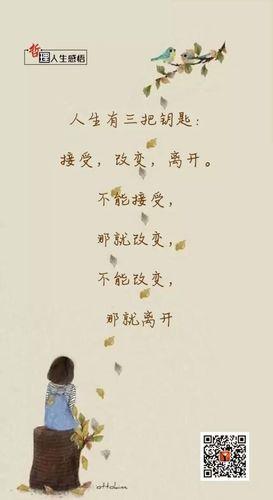 哲理人生感悟
人生有三把钥匙：
接受，改变，离开。
不能接受，
那就改变，
不能改变，
那就离开